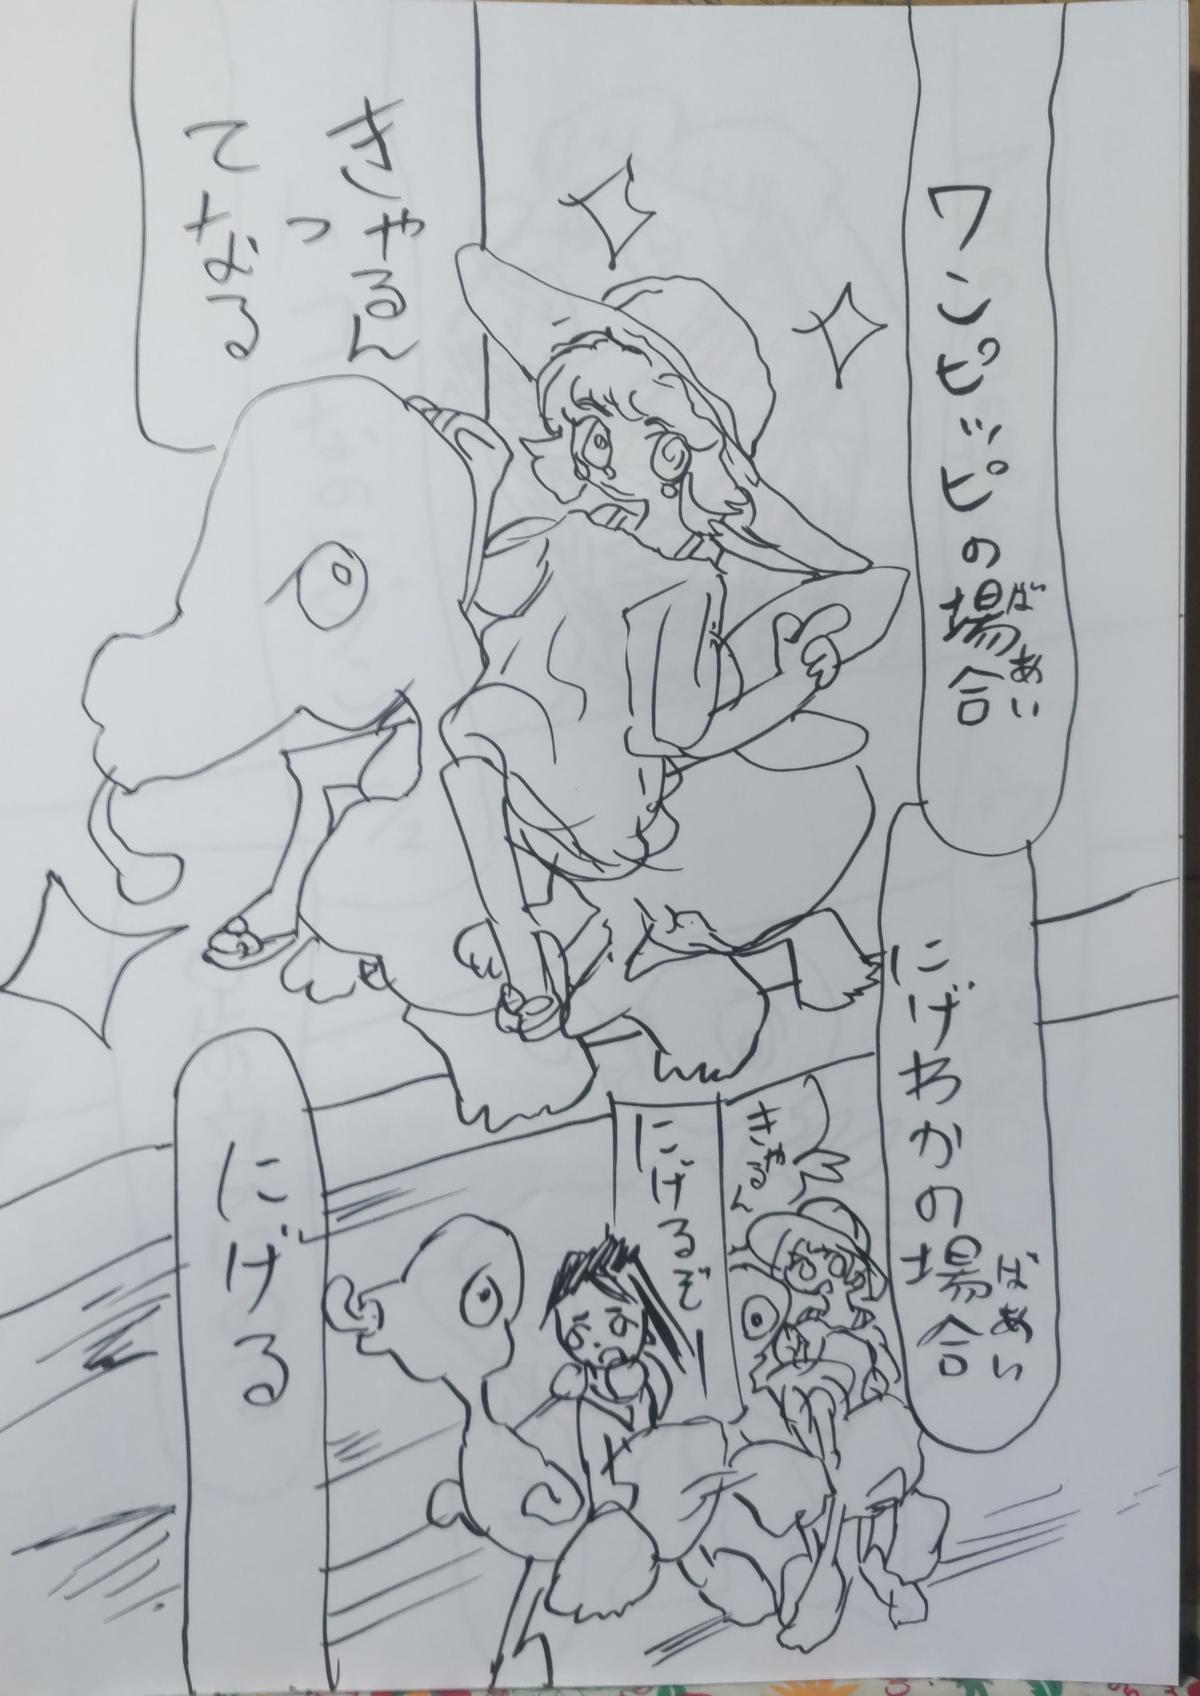 ワンピッピの場合
ばあい
きゃるん
っ
てなる
にげわかの場合
ばあい
きゃるん
にげるぞー
にげる